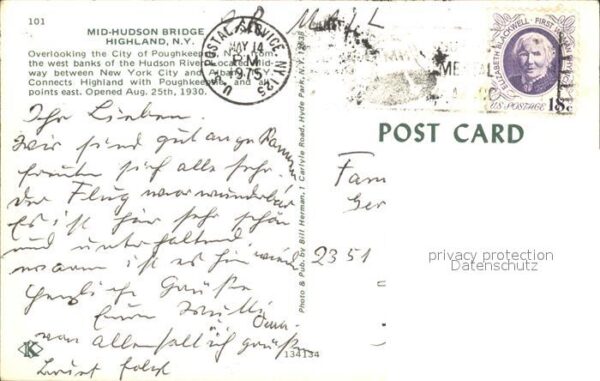 101
MID-HUDSON BRIDGE
HIGHLAND, N.Y.
Overlooking the City of Poughkeepsie, N.Y. from
the west banks of the Hudson River. Located mid-
way between New York City and Albany.
Connects Highland with Poughkeepsie and all
points east. Opened Aug. 25th, 1930.
U.S. POSTAL SERVICE NY 125
MAY 14
PM
1975
AIR MAIL
ELIZABETH BLACKWELL · FIRST WOMAN PHYSICIAN
18c
U.S. POSTAGE
POST CARD
Ihr Lieben.
Wir sind gut angekommen
freuten sich alle sehr.
Der Flug war wunderbar
Es ist hier sehr schön
und unterhaltend
warm ist es hier
herzliche Grüße
Eure Mutti
von
Photo & Pub. by Bill Herman, 1 Carlyle Road, Hyde Park, N.Y. 12538
Fam
Ger
2351
privacy protection
Datenschutz
K
134134